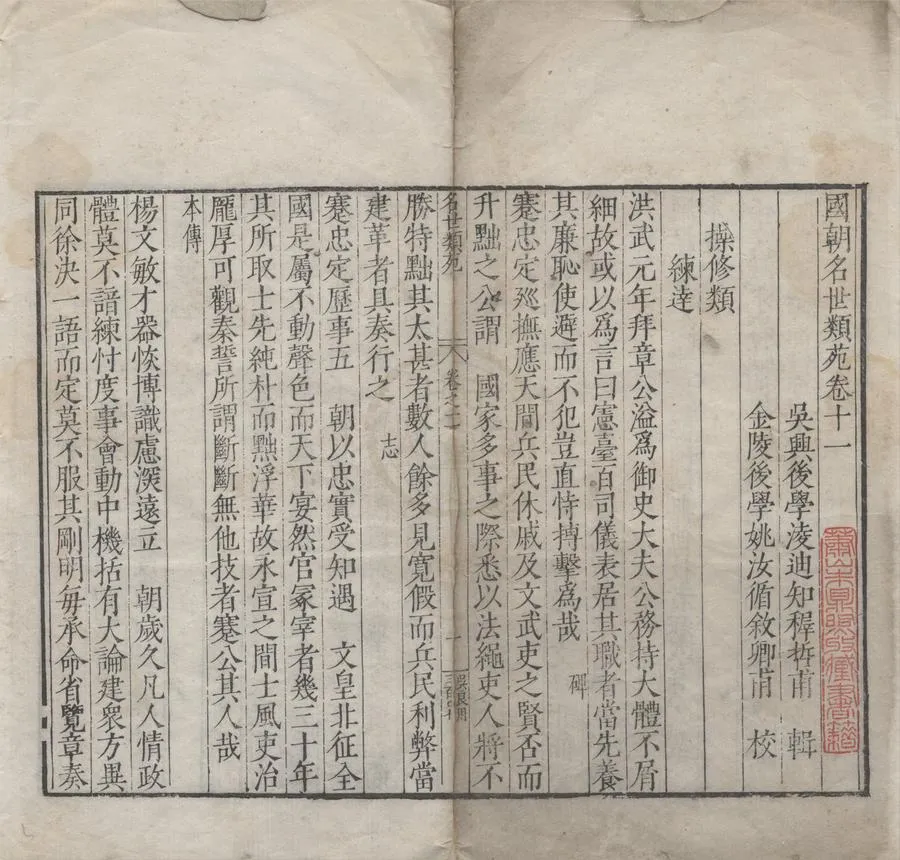 國朝名世類苑卷十一
吳興後學淩迪知穉哲甫　輯
金陵後學姚汝循敘卿甫　校
操修類
練達
洪武元年拜章公溢爲御史大夫公務持大體不屑
細故或以爲言曰憲臺百司儀表居其職者當先養
其廉恥使避而不犯豈直恃搏擊爲哉　碑
蹇忠定廵撫應天間兵民休戚及文武吏之賢否而
升黜之公謂　國家多事之際悉以法繩吏人將不
名世類苑　卷之十一　一
勝特黜其太甚者數人餘多見寬假而兵民利弊當
建革者具奏行之　志
蹇忠定歷事五　朝以忠實受知遇　文皇北征全
國是屬不動聲色而天下宴然官冢宰者幾三十年
其所取士先純朴而黜浮華故永宣之間士風吏治
龎厚可觀秦誓所謂斷斷無他技者蹇公其人哉
本傳
楊文敏才器恢博識慮深遠立　朝歲久凡人情政
體莫不諳練忖度事會動中機括有大論建衆方異
同徐決一語而定莫不服其剛明每承命省覽章奏